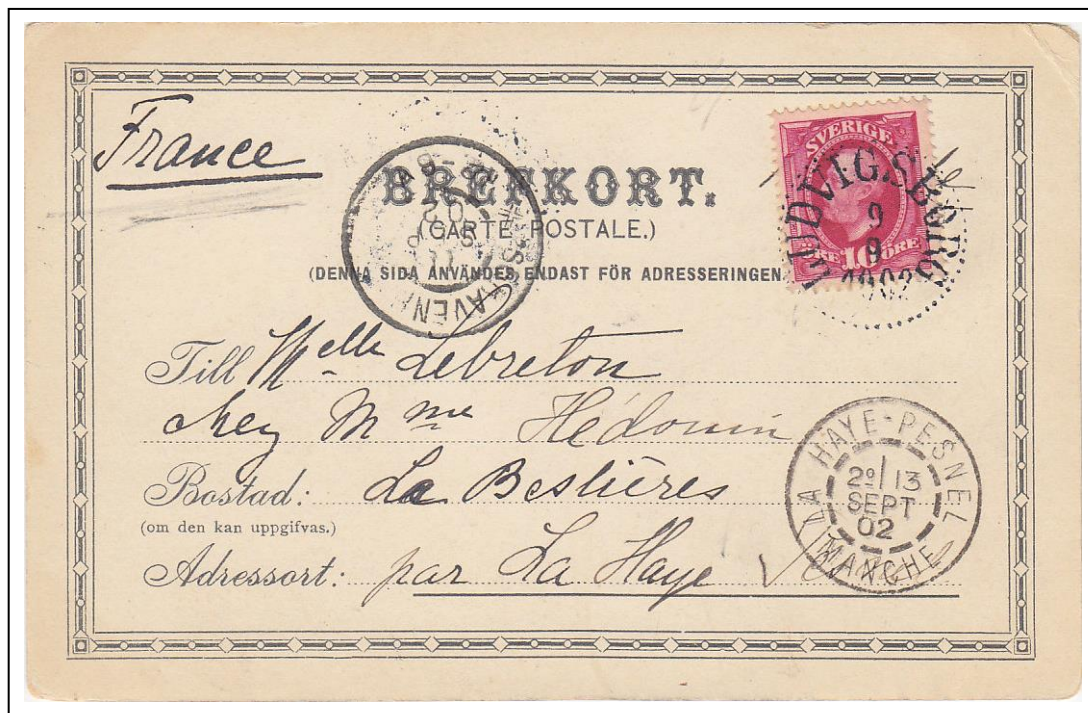 France
BREFKORT.
(CARTE POSTALE.)
(DENNA SIDA ANVÄNDES ENDAST FÖR ADRESSERINGEN
SVERIGE
ÖRE 10 ÖRE
LUDVIGSBORG
9
9
1902
Till Melle Lebreton
chez Mme Hédouin
Bostad: La Beslières
(om den kan uppgifvas.)
Adressort: par La Haye
LA HAYE-PESNEL
2e 13
SEPT
02
MANCHE